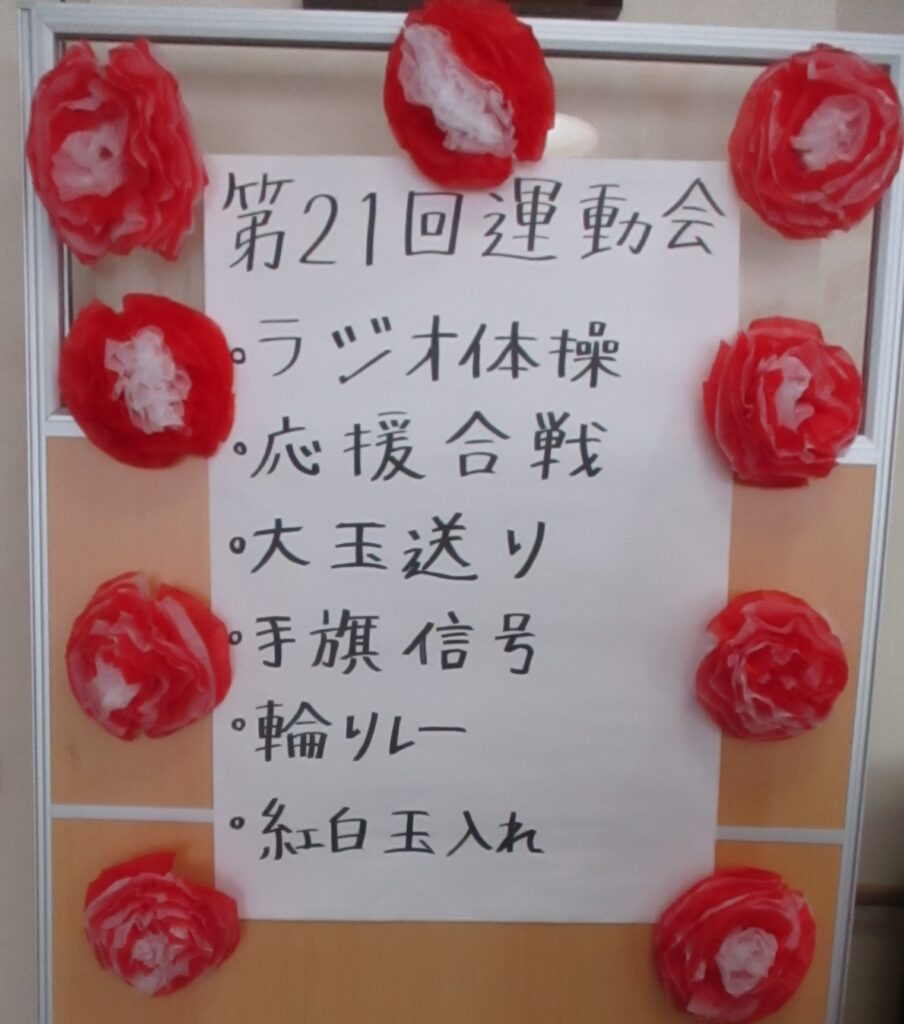 第21回運動会
・ラジオ体操
・応援合戦
・大玉送り
・手旗信号
・輪リレー
・紅白玉入れ